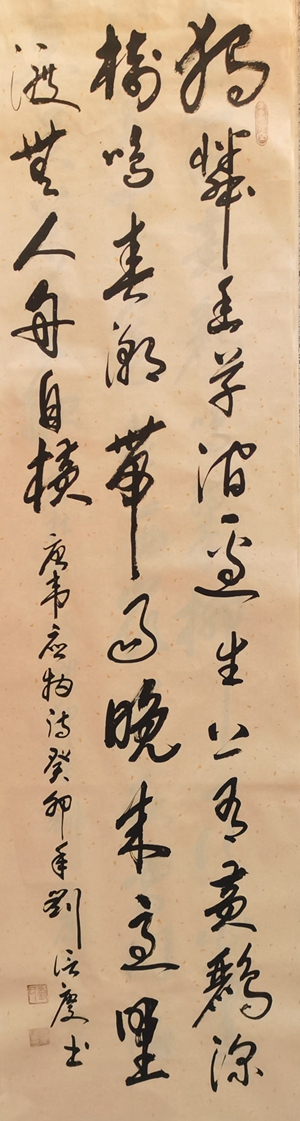 獨憐幽草澗邊生上有黃鸝深
樹鳴春潮帶雨晚來急野
渡無人舟自橫 唐韋應物詩癸卯年劉慶书